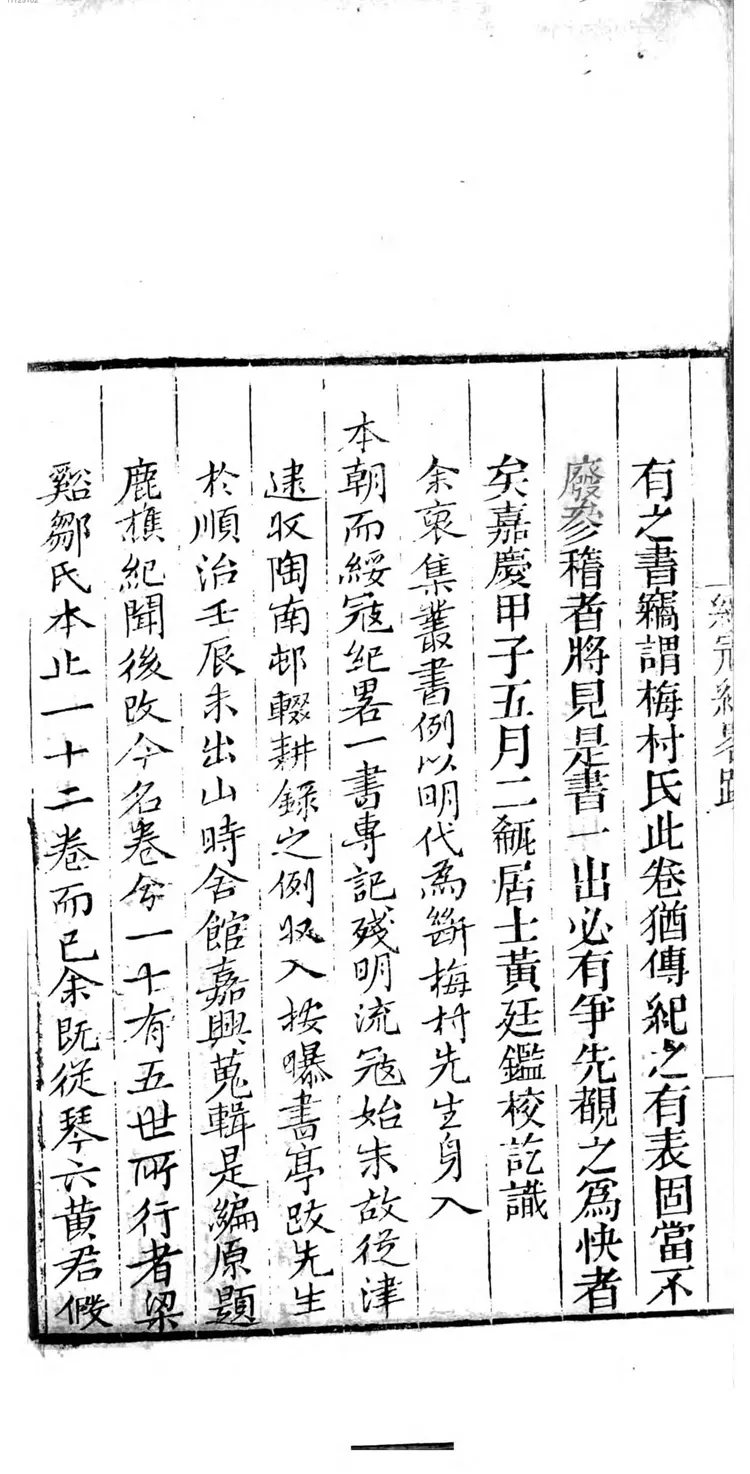 綏寇紀畧跋
有之書竊謂梅村氏此卷猶傳紀之有表固當不
廢參稽者將見是書一出必有爭先覩之爲快者
矣嘉慶甲子五月二瓻居士黃廷鑑校訖識
余裒集叢書例以明代為斷梅村先生身入
本朝而綏寇紀畧一書專記殘明流寇始末故從津
逮収陶南邨輟耕錄之例収入按曝書亭跋先生
於順治壬辰未出山時舍館嘉興蒐輯是編原題
鹿樵紀聞後改今名卷分一十有五世所行者梁
谿鄒氏本止一十二卷而已余既從琴六黄君假